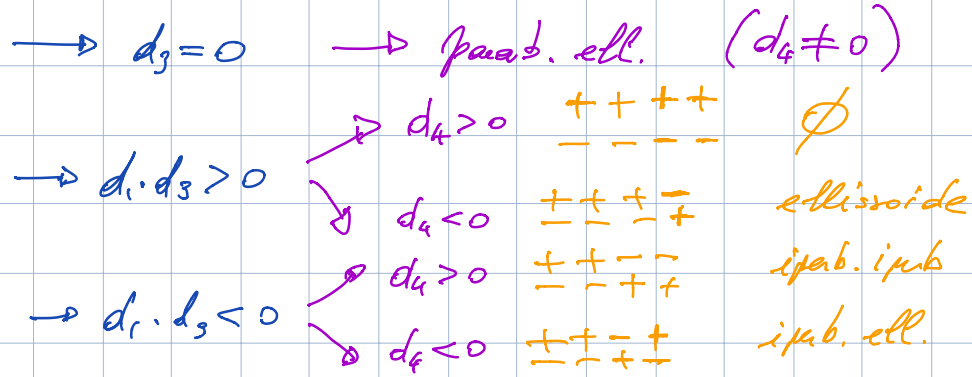 → d₃ = 0 → parab. ell. (d₄ ≠ 0)
→ d₁·d₃ > 0
d₄ > 0 + + + + ∅
− − − −
d₄ < 0 + + + − ellissoide
− − − +
→ d₁·d₃ < 0
d₄ > 0 + + − − iperb. iperb
− − + +
d₄ < 0 + + − + iperb. ell.
− − + −